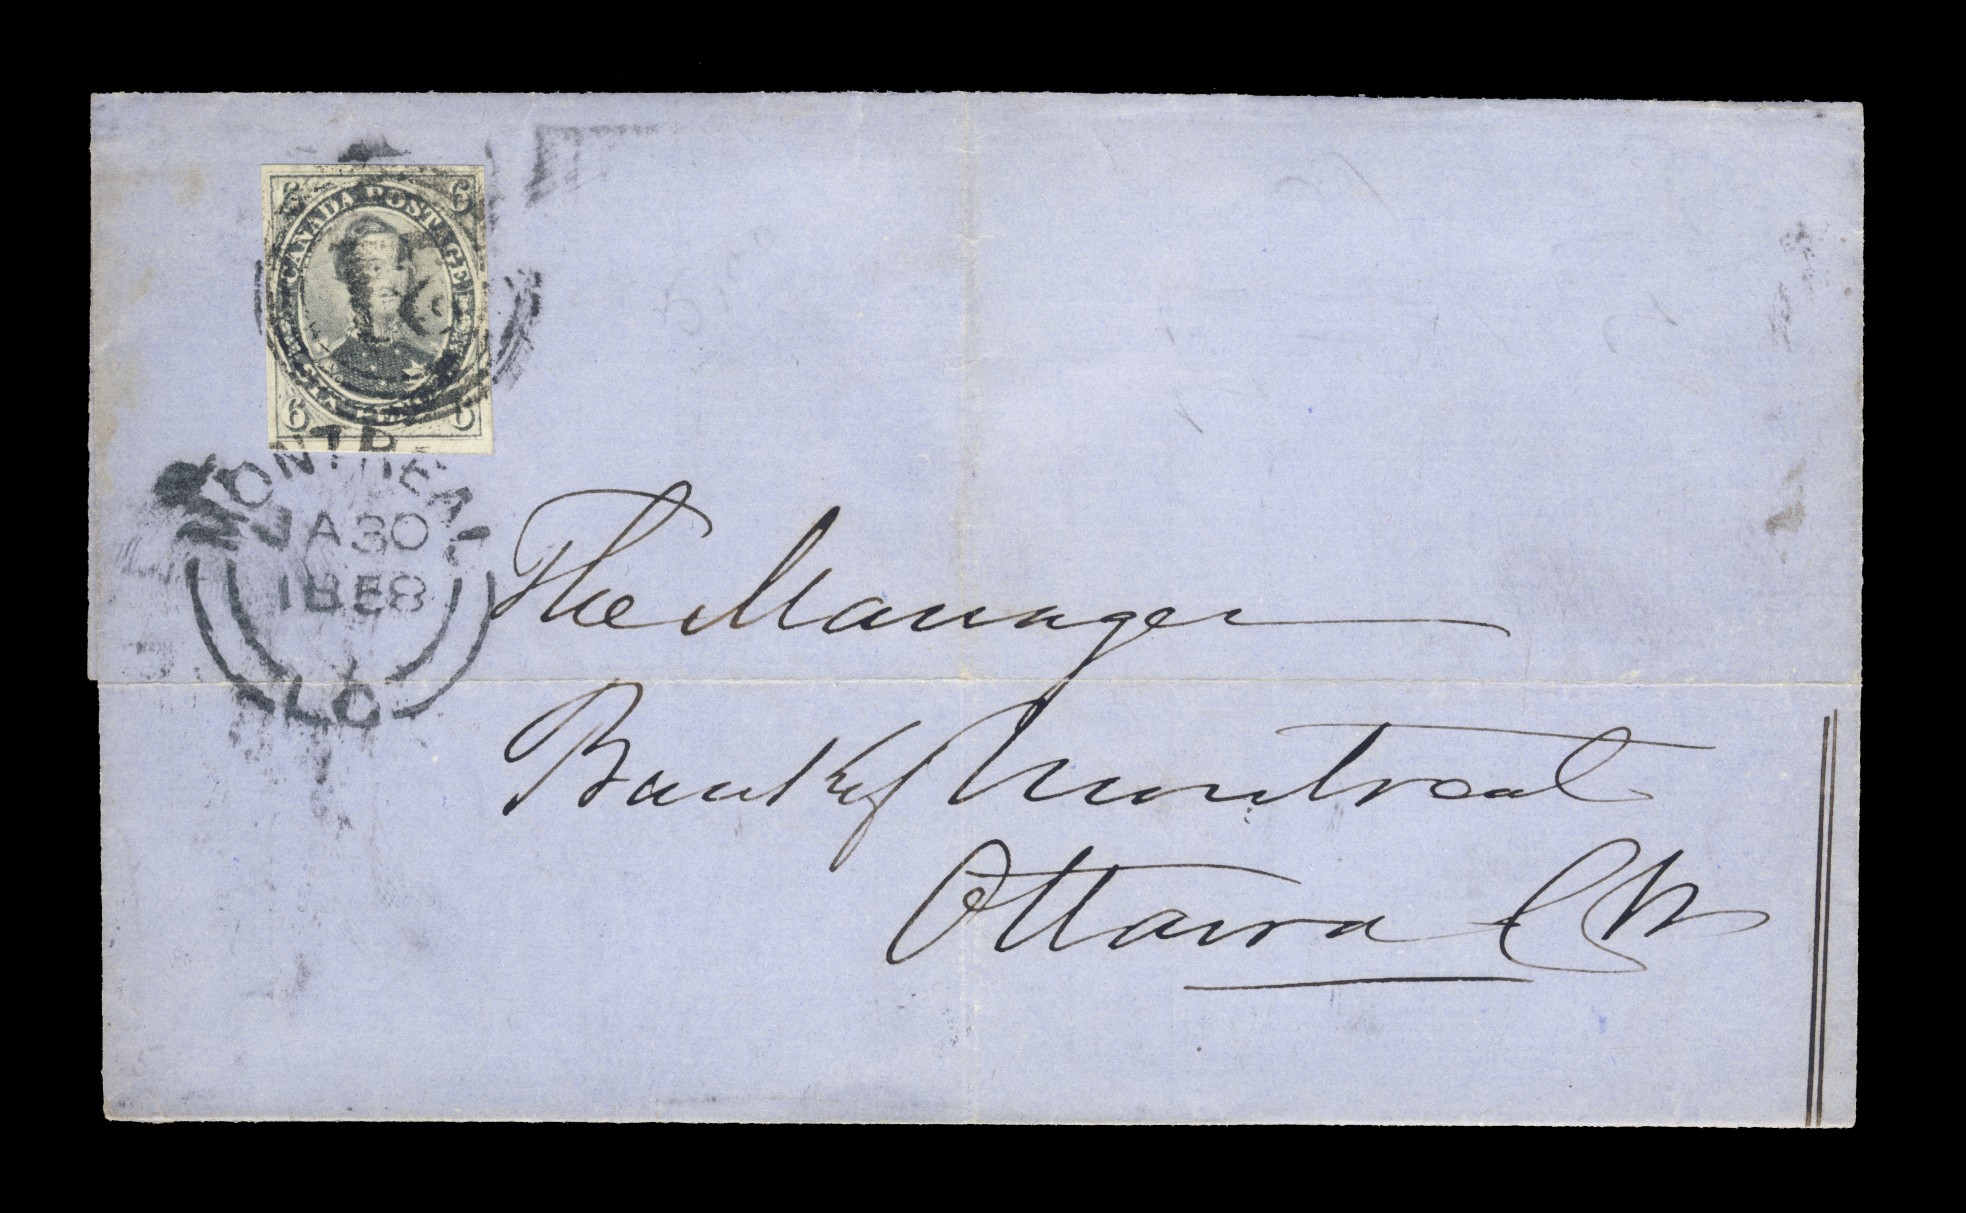 6 6
CANADA POSTAGE
SIX PENCE
6 6
MONTREAL
JA 30
1858
L.C
The Manager
Bank of Montreal
Ottawa CW